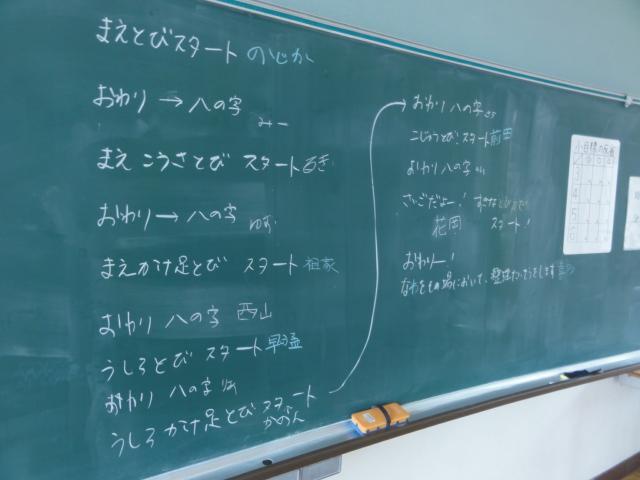 まえとびスタート のどか
おわり → 八の字
みー
まえ こうさとび スタート るき
おわり → 八の字
まえかけ足とび スタート
おわり 八の字 西山
うしろとび スタート
おわり 八の字
うしろ かけ足とび スタート
かのん
おわり 八の字
スタート 前田
おわり 八の字
さいごだよー！
花岡 スタート！
おわりー！
なわをその場において、整理たいそうをします